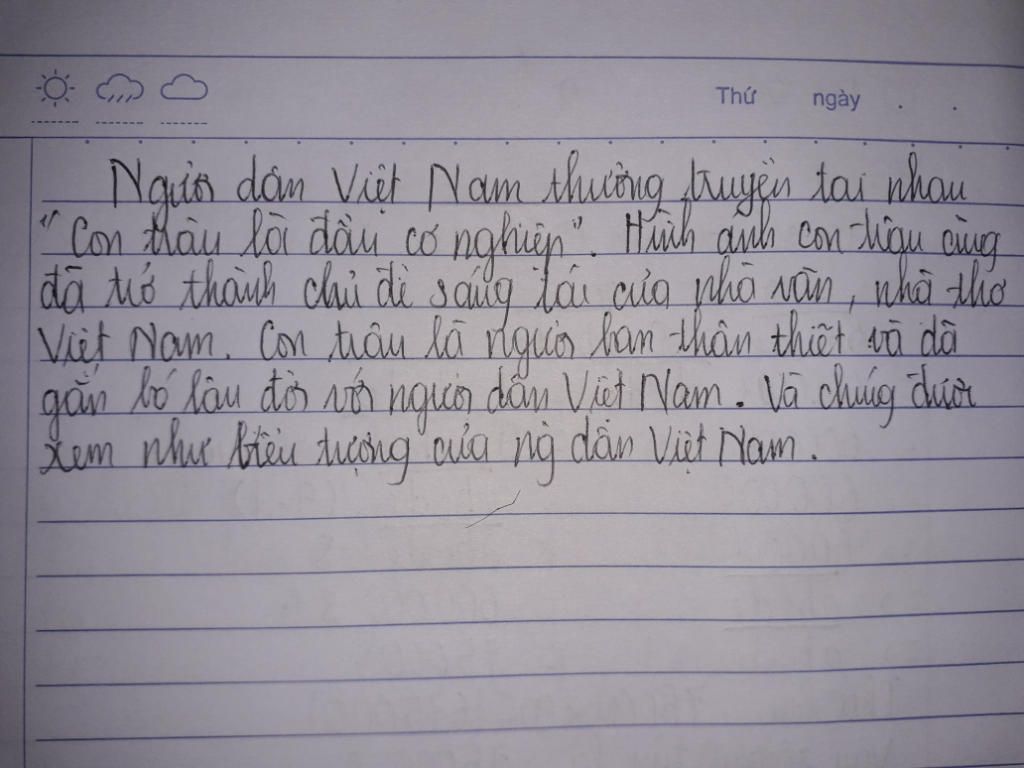 Thứ ngày . .
Người dân Việt Nam thường truyền tai nhau
"Con trâu là đầu cơ nghiệp". Hình ảnh con trâu cũng
đã trở thành chủ đề sáng tác của nhà văn, nhà thơ
Việt Nam. Con trâu là người bạn thân thiết và đã
gắn bó lâu đời với người dân Việt Nam. Và chúng được
xem như biểu tượng của ng dân Việt Nam.